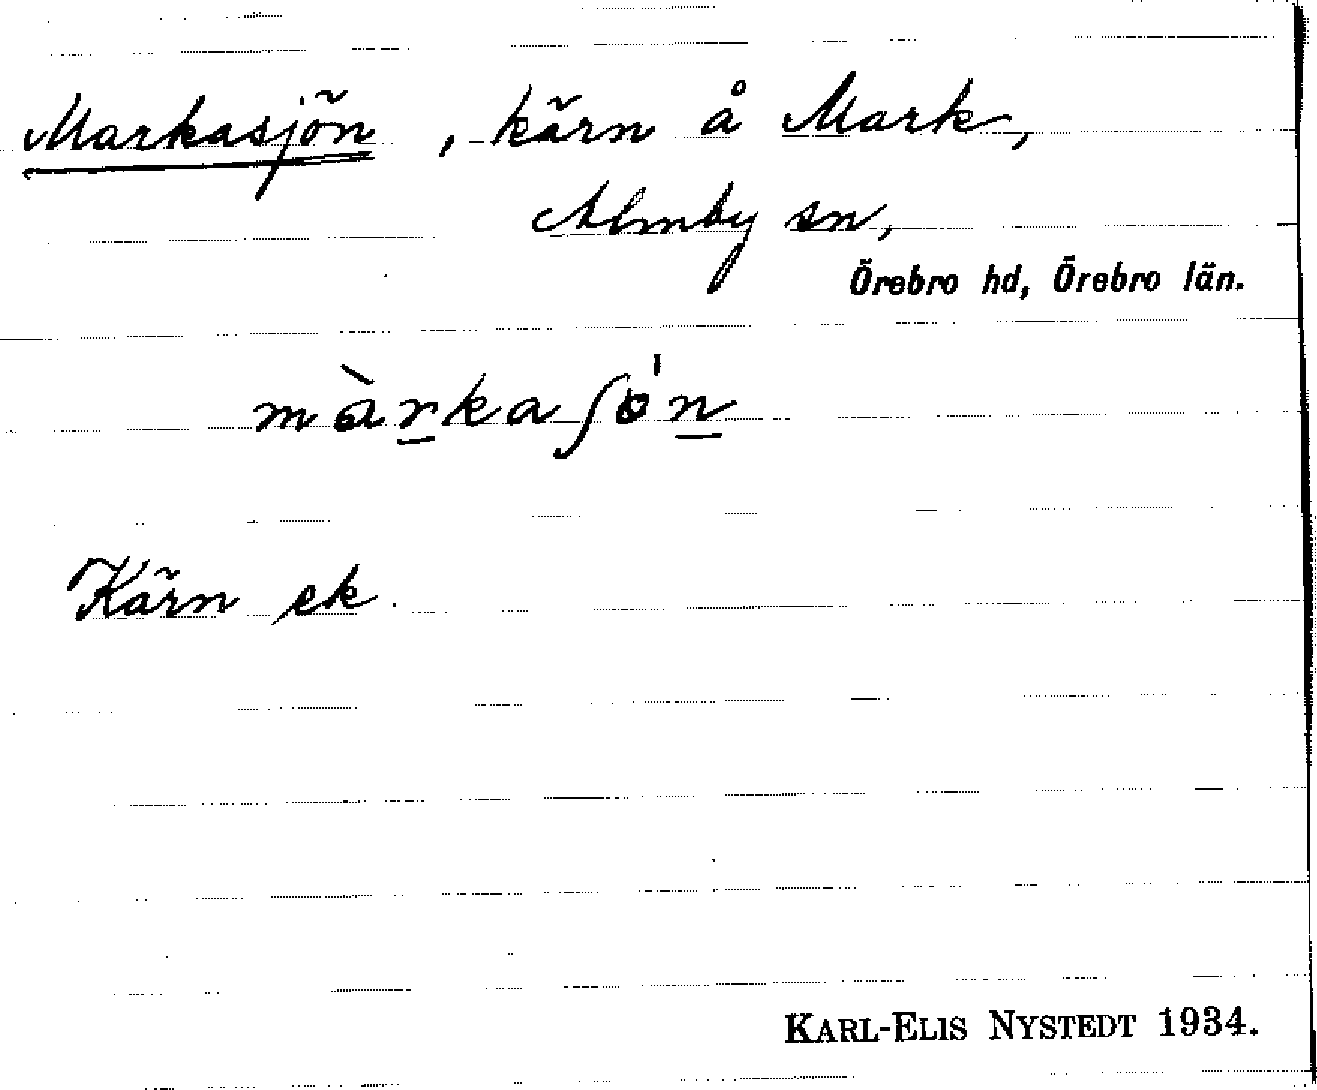 Markasjön, kärn å Mark,
Almby sn,
Örebro hd, Örebro län.
màrkaʃó̍n
Kärn ek.
KARL-ELIS NYSTEDT 1934.